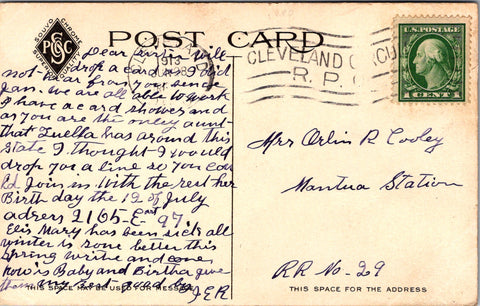 POST CARD
Dear Sis. I will
not drop a card as I did
hear from you since
Jan. we are all able to work
I have a card shower and
as you are the onley aunt
that Luella has around this
State I thought I would
drop you a line so you cou
ld Join in with the rest her
Birth day the 12 of July
adress 2165-E 97.
Mary has been sick all
winter is some better this
Spring write and come
how is Baby and Birtha give
them my best good by
J E R
THIS SPACE MAY BE USED FOR MESSAGE
1913
CLEVELAND
R.P.O.
U.S. POSTAGE
1 CENT 1
Mrs Orlin R Cooley
Mantua Station
RR No-29
THIS SPACE IS FOR THE ADDRESS